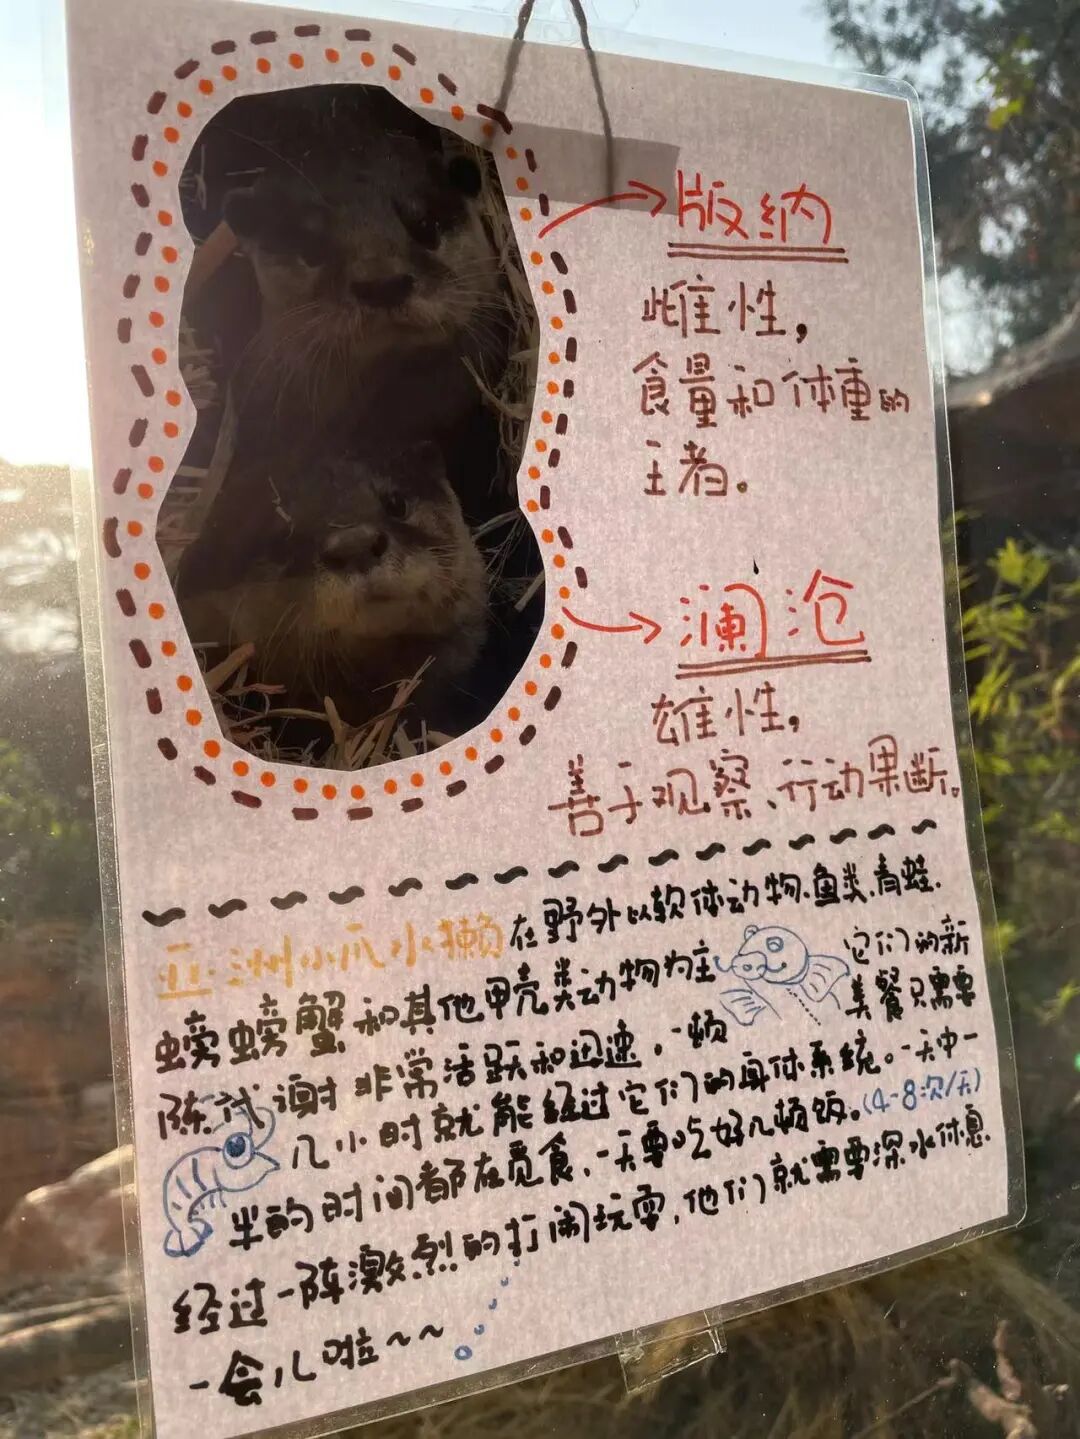 版纳
雌性，
食量和体重的
王者。
澜沧
雄性，
善于观察、行动果断。
亚洲小爪水獭在野外以软体动物、鱼类、青蛙、
螃螃蟹和其他甲壳类动物为主 它们的新
陈代谢非常活跃和迅速。一顿 美餐只需要
几小时就能经过它们的身体系统。一天中一
半的时间都在觅食、一天要吃好几顿饭。(4-8次/天)
经过一阵激烈的打闹玩耍，他们就需要深水休息
一会儿啦~~